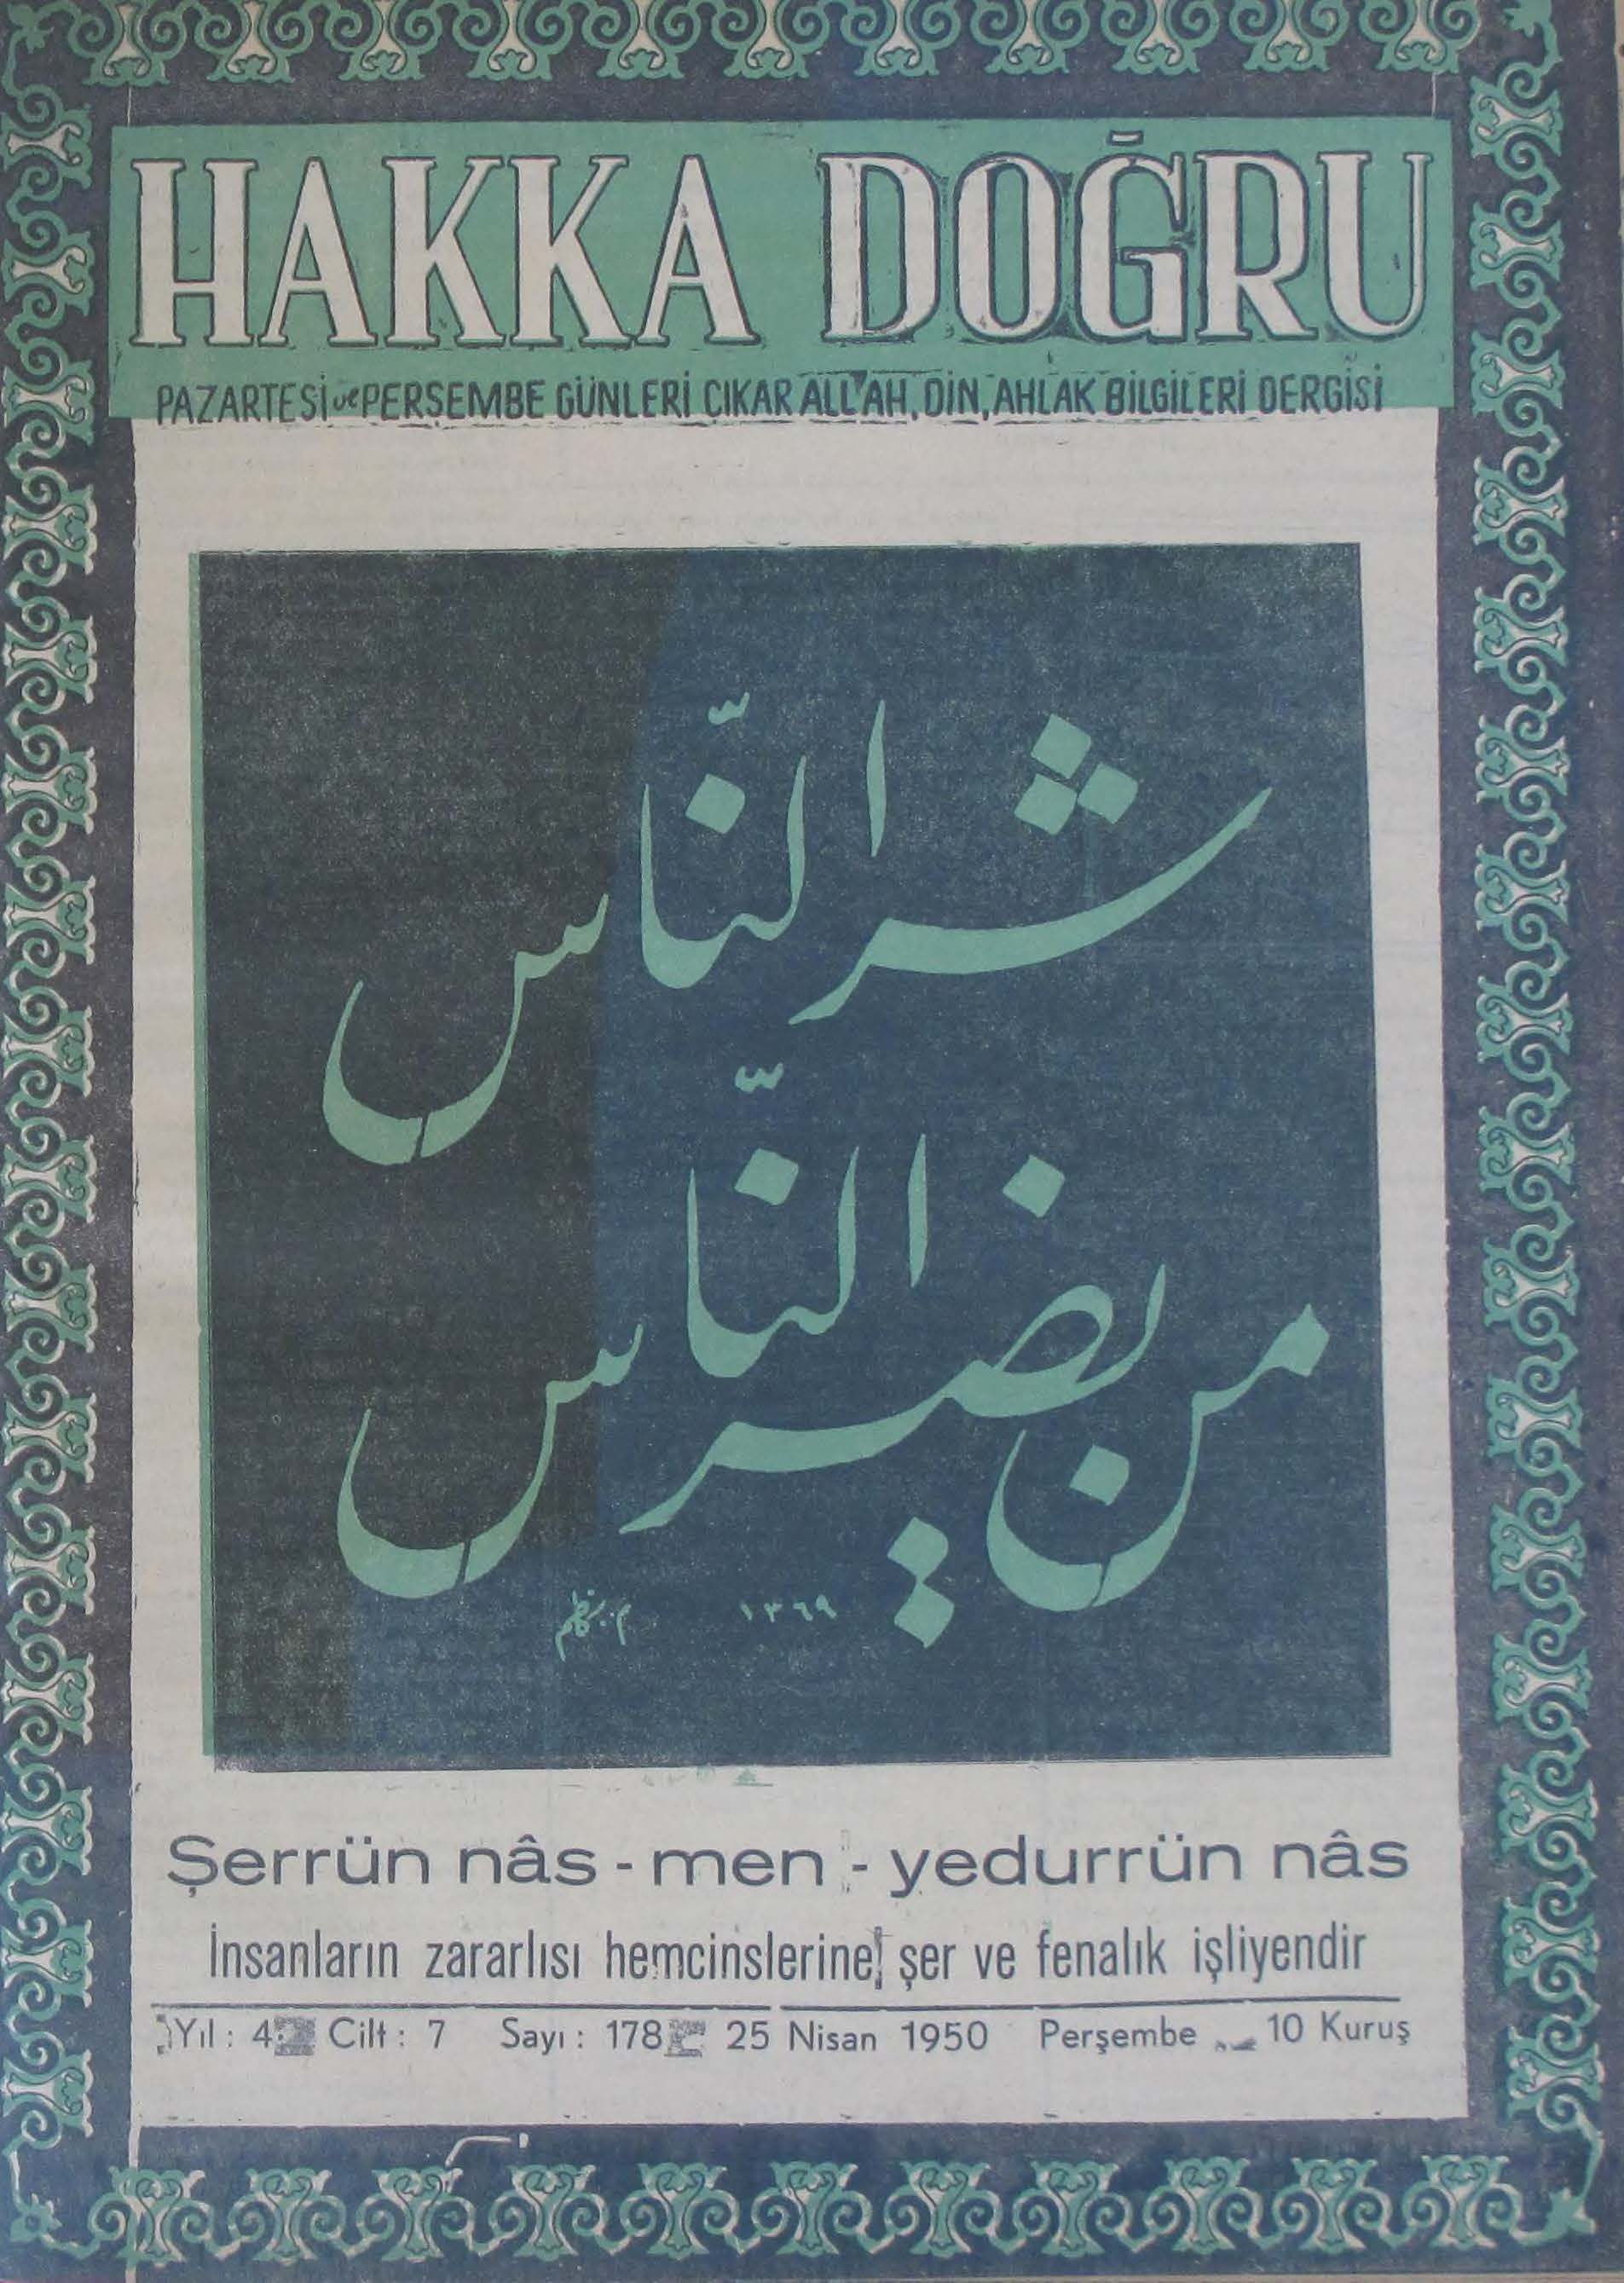 HAKKA DOĞRU
PAZARTESİ ve PERŞEMBE GÜNLERİ ÇIKAR ALLAH, DİN, AHLÂK BİLGİLERİ DERGİSİ
شر النّاس
من يضر النّاس
١٣٦٩
Şerrün nâs - men - yedurrün nâs
İnsanların zararlısı hemcinslerine şer ve fenalık işliyendir
Yıl : 4 Cilt : 7 Sayı : 178 25 Nisan 1950 Perşembe 10 Kuruş